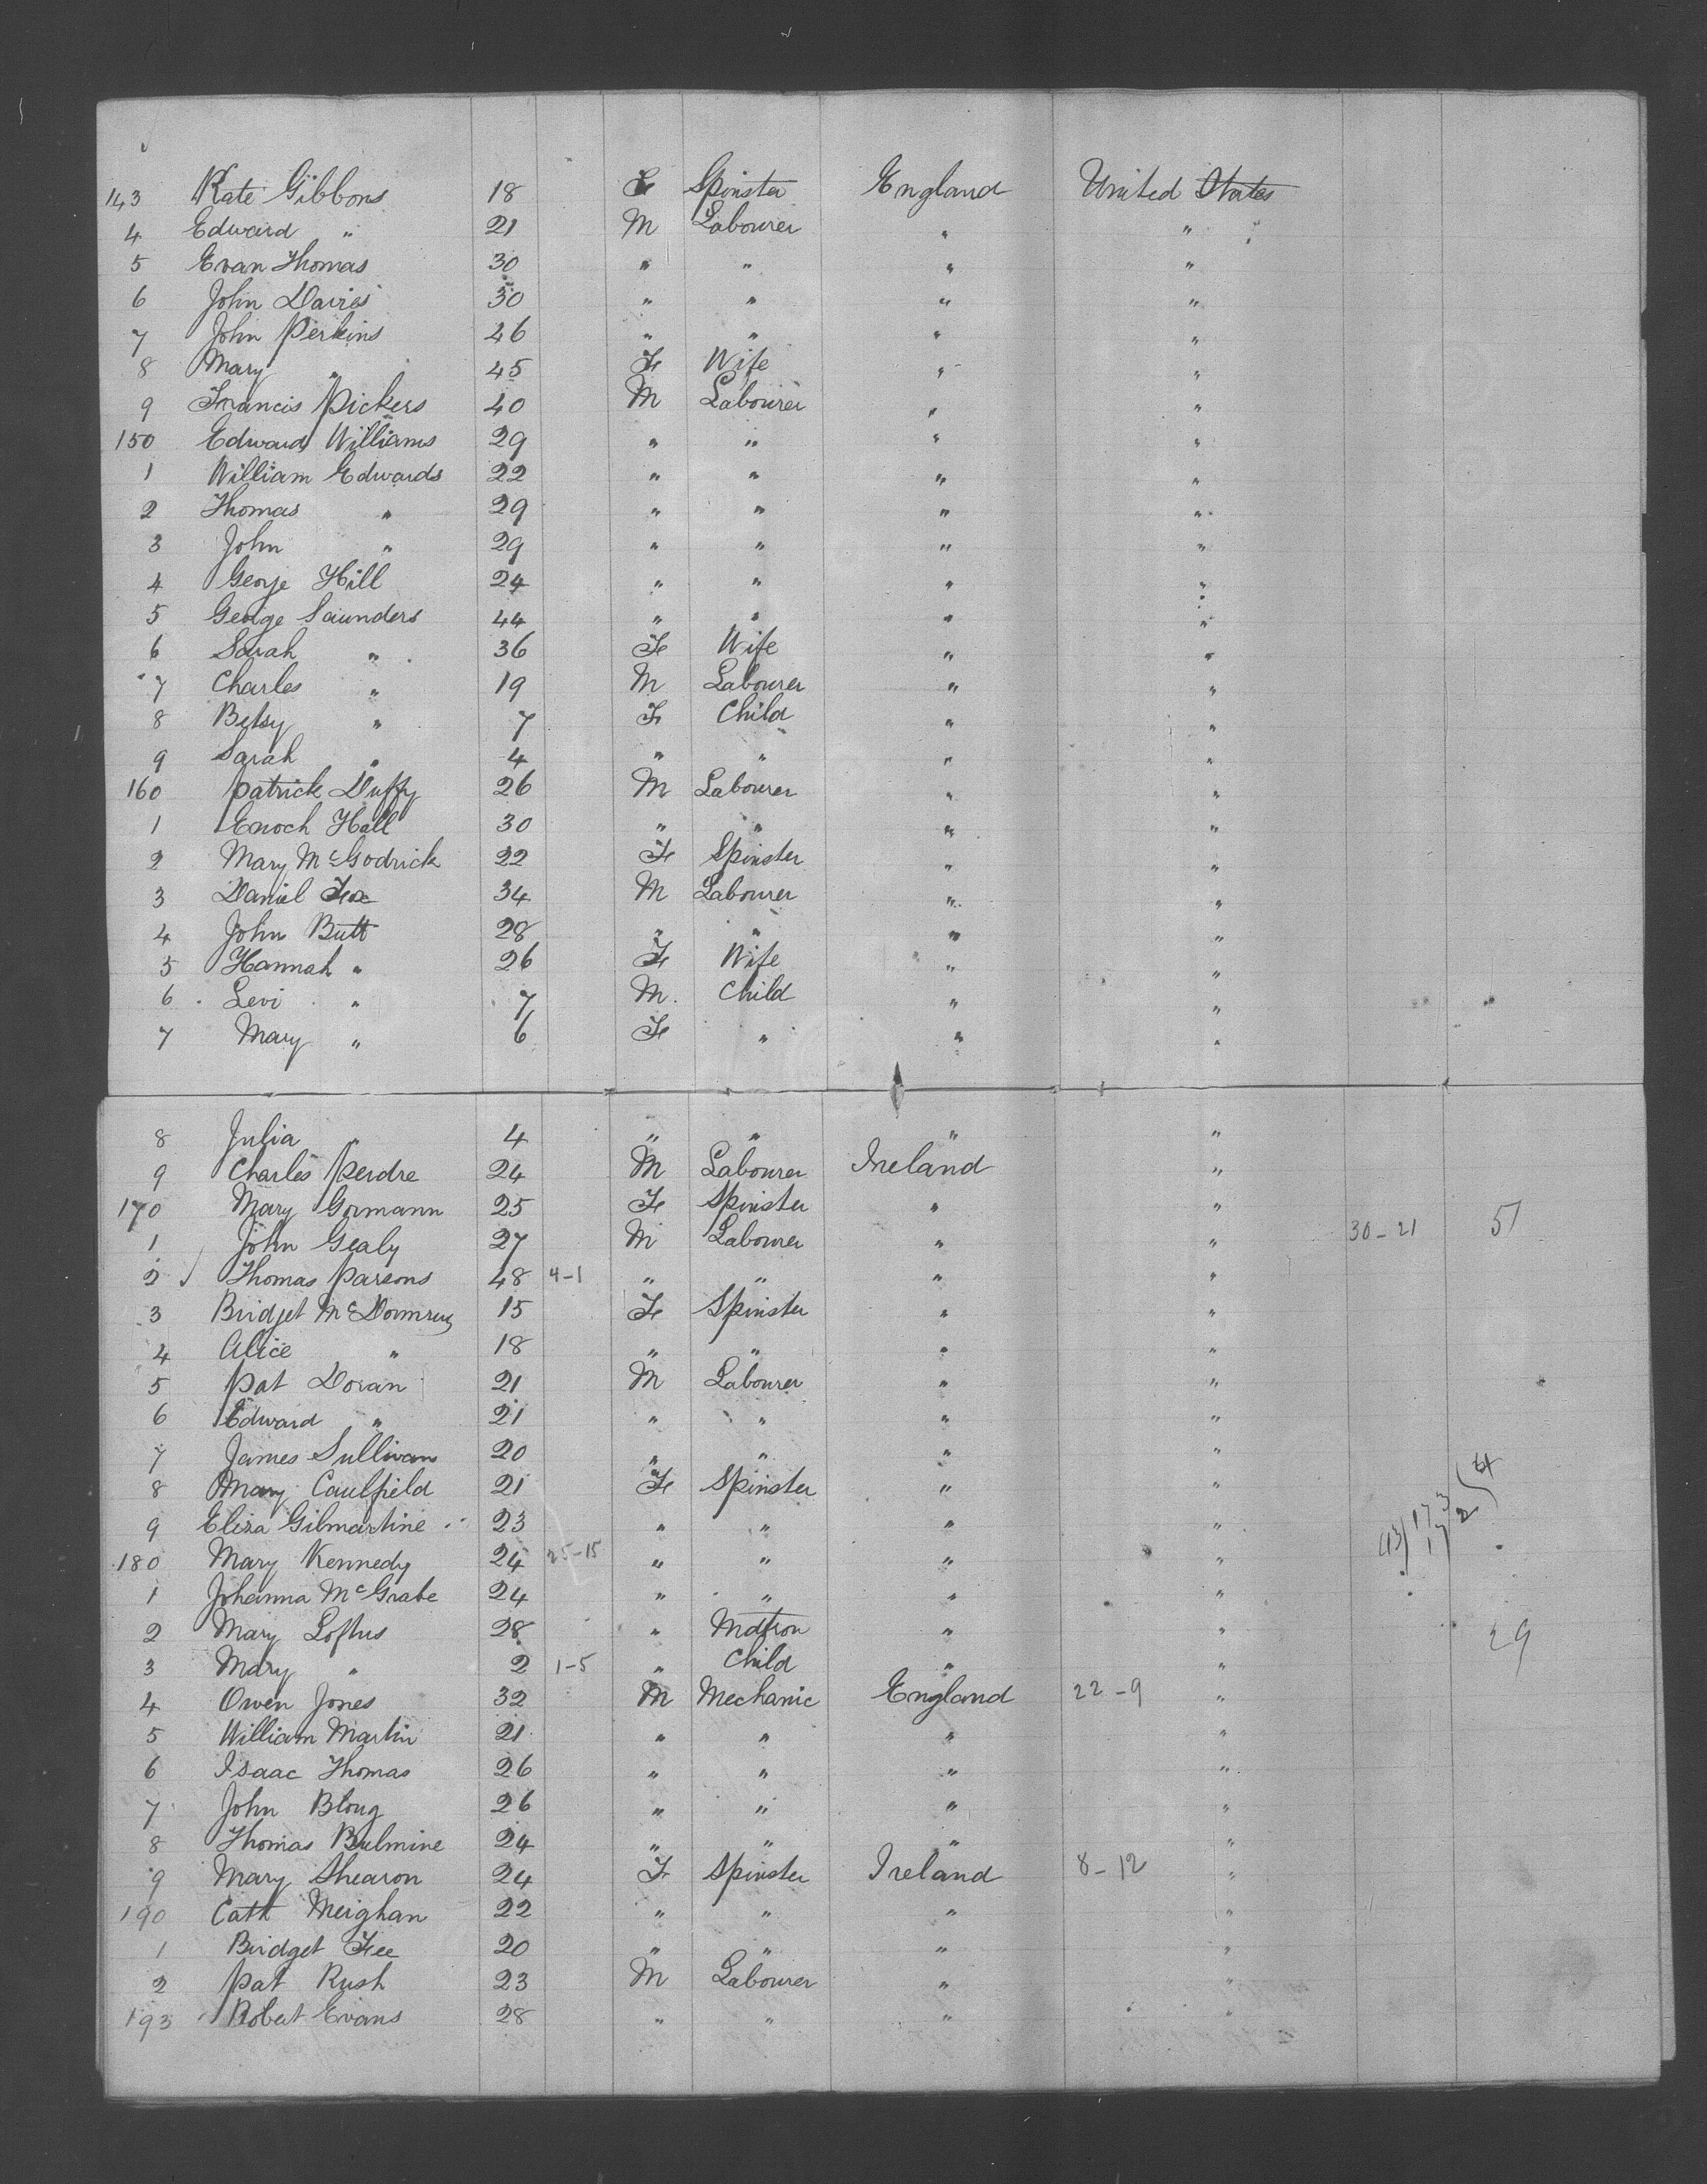 143 Kate Gibbons 18 Fe Spinster England United States
4 Edward " 21 M Labourer " "
5 Evan Thomas 30 " " " "
6 John Davies 30 " " " "
7 John Perkins 46 " " " "
8 Mary " 45 Fe Wife " "
9 Francis Pickers 40 M Labourer " "
150 Edward Williams 29 " " " "
1 William Edwards 22 " " " "
2 Thomas " 29 " " " "
3 John " 29 " " " "
4 George Hill 24 " " " "
5 George Saunders 44 " " " "
6 Sarah " 36 Fe Wife " "
7 Charles " 19 M Labourer " "
8 Betsy " 7 Fe Child " "
9 Sarah " 4 " " " "
160 Patrick Duffy 26 M Labourer " "
1 Enoch Hall 30 " " " "
2 Mary McGodrick 22 Fe Spinster " "
3 Daniel Fox 34 M Labourer " "
4 John Butt 28 " " " "
5 Hannah " 26 Fe Wife " "
6 Levi " 7 M Child " "
7 Mary " 6 Fe " " "
8 Julia " 4 " " " "
9 Charles Perdre 24 M Labourer Ireland "
170 Mary Gormann 25 Fe Spinster " "
1 John Gealy 27 M Labourer " " 30-21 51
2 Thomas Parsons 48 4-1 " " " "
3 Bridget 15 Fe Spinster " "
4 Alice " 18 " " " "
5 Pat Doran 21 M Labourer " "
6 Edward " 21 " " " "
7 James Sullivan 20 " " " "
8 Mary Caulfield 21 Fe Spinster " "
9 Eliza Gilmartine 23 " " " "
180 Mary Kennedy 24 25-15 " " " "
1 Johanna McGrabe 24 " " " "
2 Mary Loftus 28 " Matron " " 29
3 Mary " 2 1-5 " Child " "
4 Owen Jones 32 M Mechanic England 22-9 "
5 William Martin 21 " " " "
6 Isaac Thomas 26 " " " "
7 John Bloug 26 " " " "
8 Thomas Bulmine 24 " " " "
9 Mary Shearon 24 Fe Spinster Ireland 8-12 "
190 Cath Meighan 22 " " " "
1 Bridget Fee 20 " " " "
2 Pat Rush 23 M Labourer " "
193 Robert Evans 28 " " " "